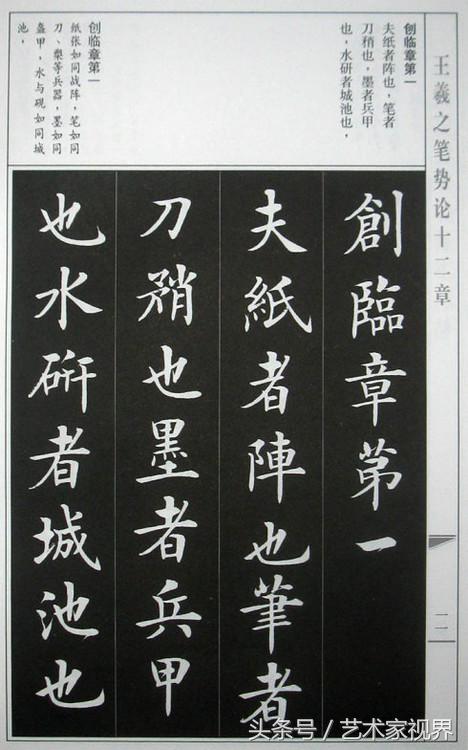 王羲之笔势论十二章
二
创临章第一
夫纸者阵也，笔者
刀稍也，墨者兵甲
也，水研者城池也，
创临章第一
纸张如同战阵，笔如同
刀、槊等兵器，墨如同
盔甲，水与砚如同城
池。
創臨章第一
夫紙者陣也筆者
刀矟也墨者兵甲
也水研者城池也
头条号／艺术家视界